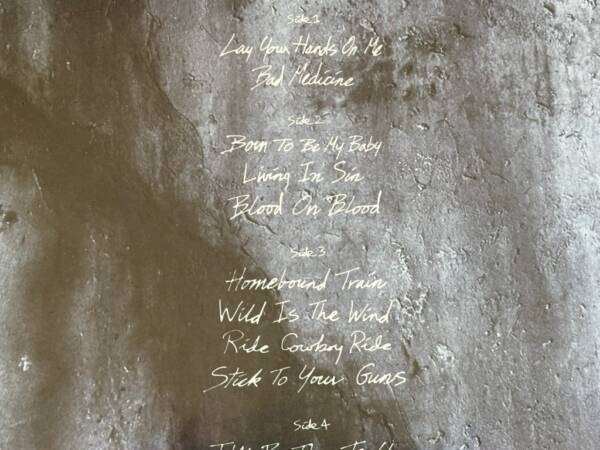 Side 1
Lay Your Hands On Me
Bad Medicine
Side 2
Born To Be My Baby
Living In Sin
Blood On Blood
Side 3
Homebound Train
Wild Is The Wind
Ride Cowboy Ride
Stick To Your Guns
Side 4